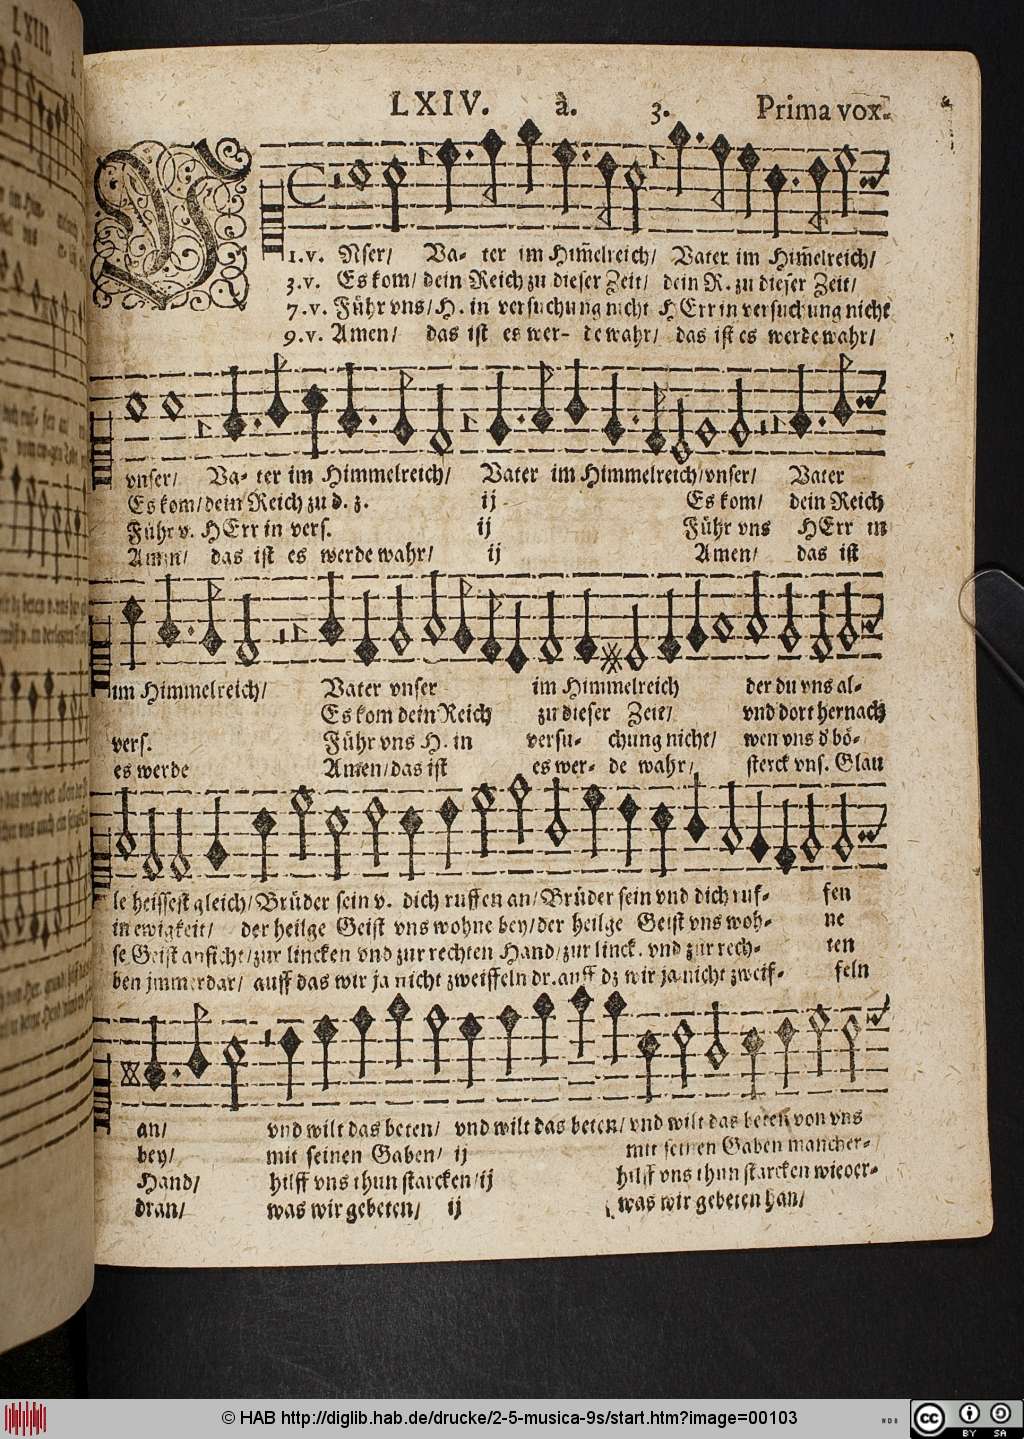 LXIII.
LXIV. à. 3. Prima vox.
V
1.v. Nser/ Va- ter im Him̃elreich/ Vater im Him̃elreich/
3.v. Es kom/ dein Reich zu dieser Zeit/ dein R. zu dieser Zeit/
7.v. Führ vns/ H. in versuchung nicht HErr in versuchung nicht
9.v. Amen/ das ist es wer- de wahr/ das ist es werde wahr/
vnser/ Va- ter im Himmelreich/ Vater im Himmelreich/vnser/ Vater
Es kom/ dein Reich zu d. z. ij Es kom/ dein Reich
Führ v. HErr in vers. ij Führ vns HErr in
Amen/ das ist es werde wahr/ ij Amen/ das ist
im Himmelreich/ Vater vnser im Himmelreich der du vns al-
Es kom dein Reich zu dieser Zeit/ vnd dort hernach
vers. Führ vns H. in versu- chung nicht/ wen vns d bö-
es werde Amen/ das ist es wer- de wahr/ sterck vns. Glau
le heissest gleich/ Brüder sein v. dich ruffen an/ Brüder sein vnd dich ruf- fen
in ewigkeit/ der heilge Geist vns wohne bey/ der heilge Geist vns woh- ne
se Geist anficht/ zur lincken vnd zur rechten Hand/ zur linck. vnd zur rech- ten
ben jmmerdar/ auff das wir ja nicht zweiffeln dr. auff dz wir ja nicht zweif- feln
an/ vnd wilt das beten/ vnd wilt das beten/ vnd wilt das beten von vns
bey/ mit seinen Gaben/ ij mit seinen Gaben mancher-
Hand/ hilff vns thun starcken/ ij hilff vns thun starcken wieder-
dran/ was wir gebeten/ ij was wir gebeten han/
© HAB http://diglib.hab.de/drucke/2-5-musica-9s/start.htm?image=00103
cc BY SA